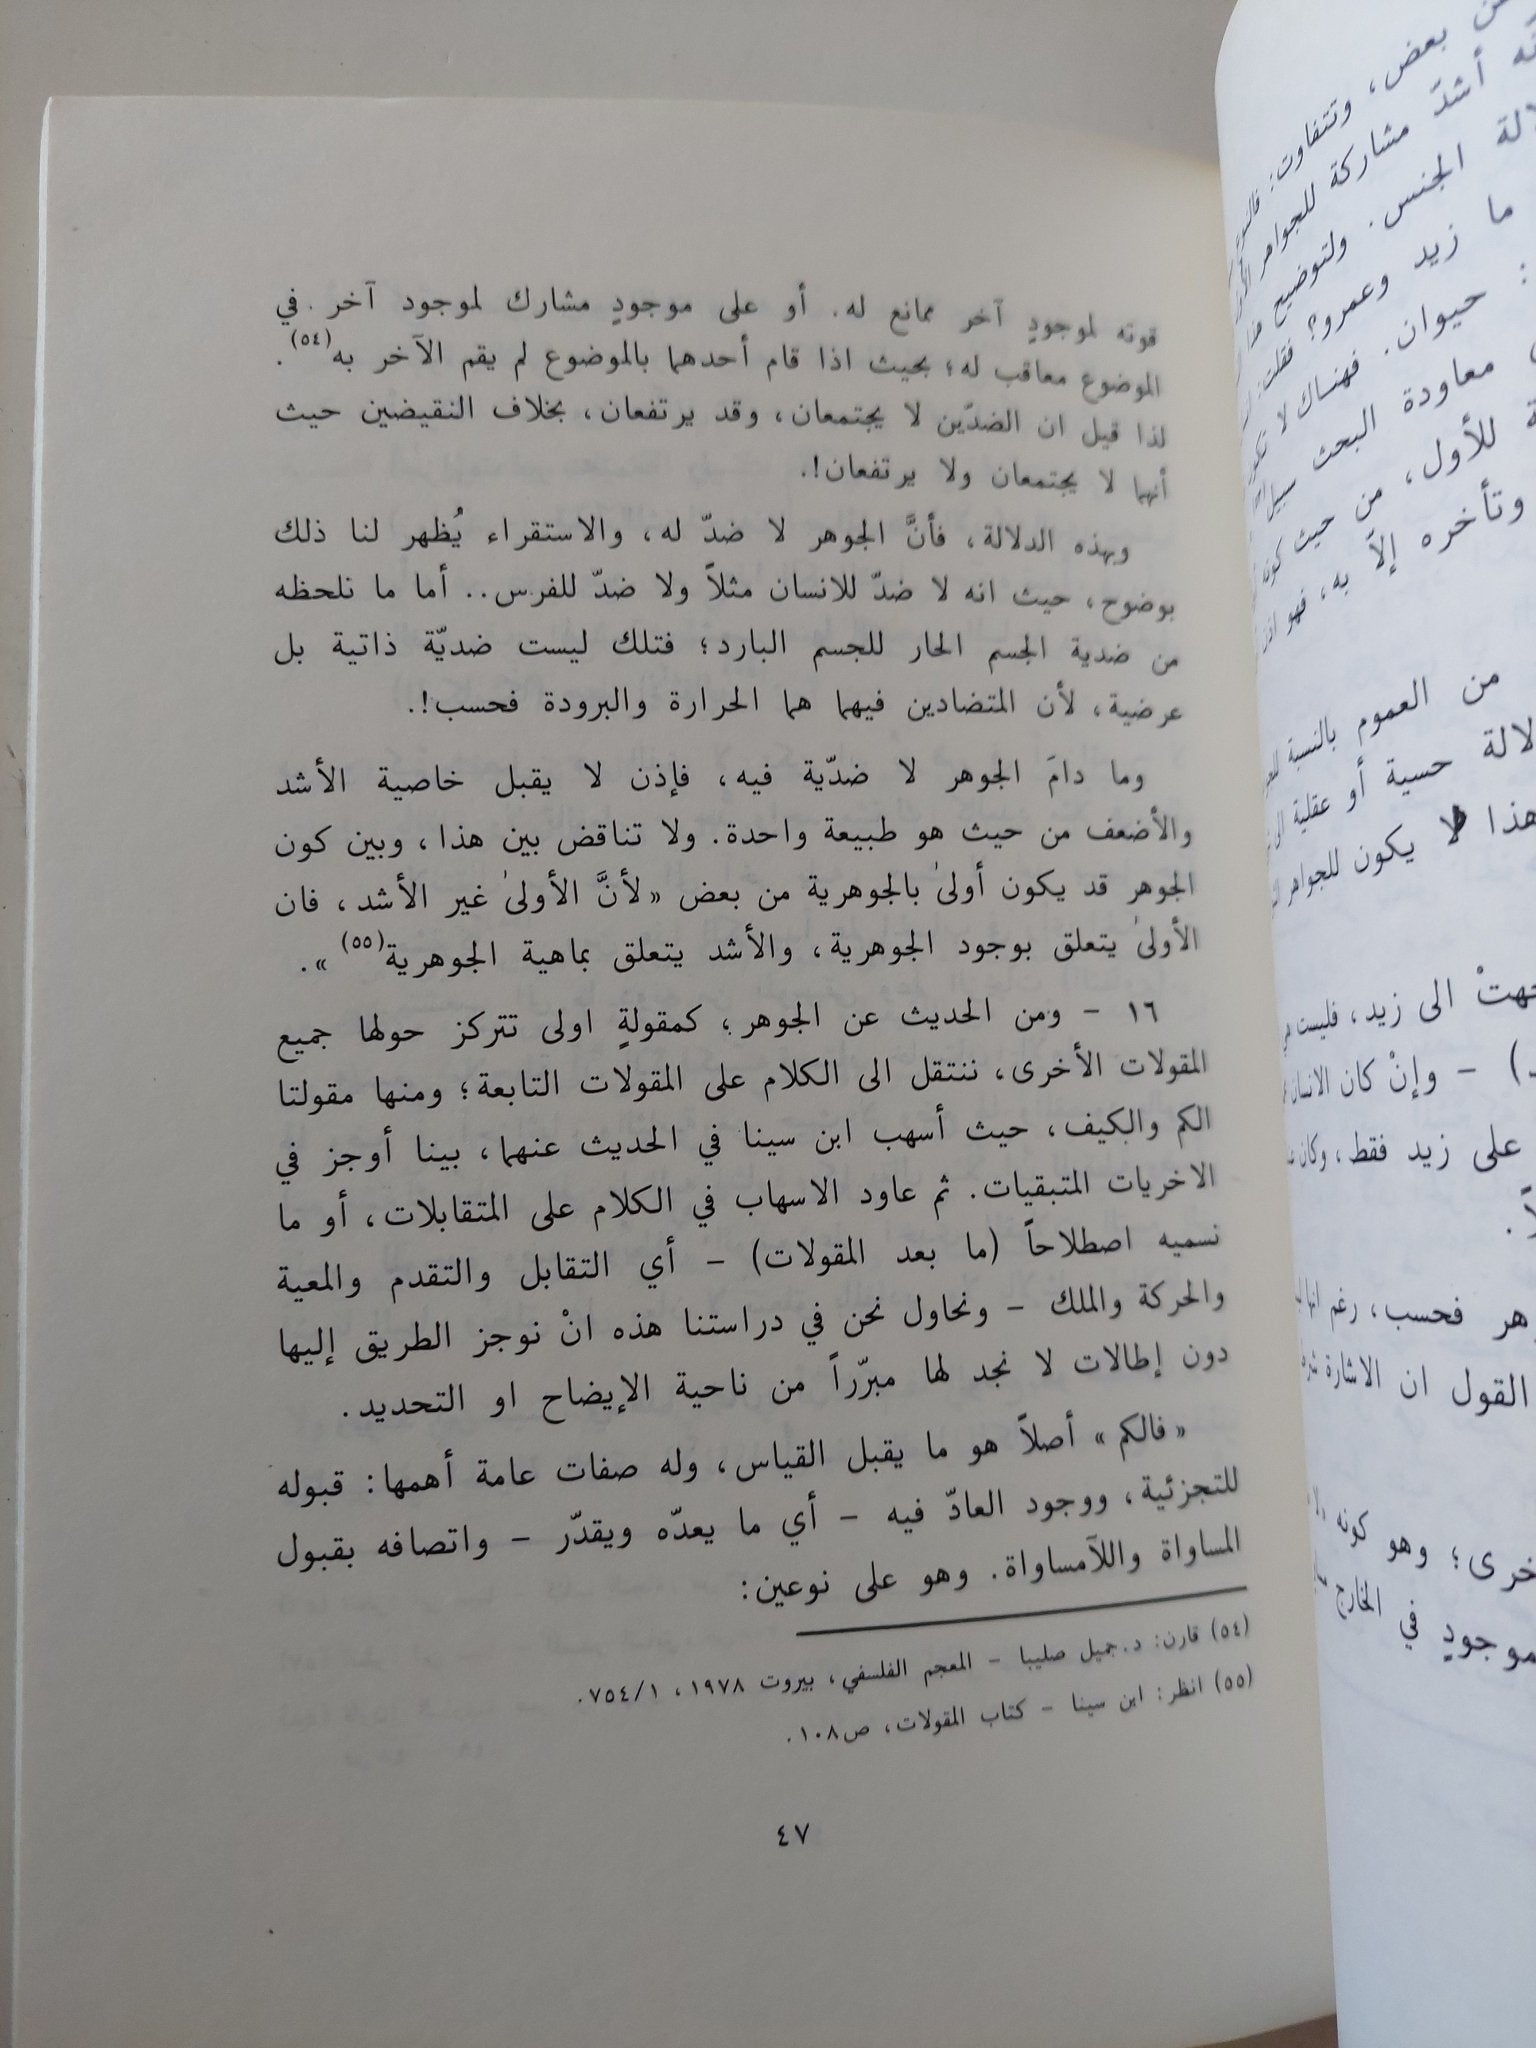 قوته لموجودٍ آخر ممانع له. أو على موجودٍ مشارك لموجود آخر في
الموضوع معاقب له؛ بحيث اذا قام أحدهما بالموضوع لم يقم الآخر به(٥٤).
لذا قيل ان الضدّين لا يجتمعان، وقد يرتفعان، بخلاف النقيضين حيث
أنهما لا يجتمعان ولا يرتفعان!.
وبهذه الدلالة، فأنَّ الجوهر لا ضدّ له، والاستقراء يُظهر لنا ذلك
بوضوح، حيث انه لا ضدّ للانسان مثلاً ولا ضدّ للفرس.. أما ما نلحظه
من ضدية الجسم الحار للجسم البارد؛ فتلك ليست ضديّة ذاتية بل
عرضية، لأن المتضادين فيهما هما الحرارة والبرودة فحسب!.
وما دامَ الجوهر لا ضدّية فيه، فإذن لا يقبل خاصية الأشد
والأضعف من حيث هو طبيعة واحدة. ولا تناقض بين هذا، وبين كون
الجوهر قد يكون أولىٰ بالجوهرية من بعض «لأنَّ الأولىٰ غير الأشد، فان
الأولىٰ يتعلق بوجود الجوهرية، والأشد يتعلق بماهية الجوهرية(٥٥)».
١٦ - ومن الحديث عن الجوهر؛ كمقولةٍ اولى تتركز حولها جميع
المقولات الأخرى، ننتقل الى الكلام على المقولات التابعة؛ ومنها مقولتا
الكم والكيف، حيث أسهب ابن سينا في الحديث عنهما، بينا أوجز في
الاخريات المتبقيات. ثم عاود الاسهاب في الكلام على المتقابلات، أو ما
نسميه اصطلاحاً (ما بعد المقولات) - أي التقابل والتقدم والمعية
والحركة والملك - ونحاول نحن في دراستنا هذه انْ نوجز الطريق إليها
دون إطالات لا نجد لها مبرّراً من ناحية الإيضاح او التحديد.
«فالكم» أصلاً هو ما يقبل القياس، وله صفات عامة أهمها: قبوله
للتجزئية، ووجود العادّ فيه - أي ما يعدّه ويقدّر - واتصافه بقبول
المساواة واللآمساواة. وهو على نوعين:
(٥٤) قارن: د.جميل صليبا - المعجم الفلسفي، بيروت ١٩٧٨، ٧٥٤/١.
(٥٥) انظر: ابن سينا - كتاب المقولات، ص١٠٨.
٤٧
بعض، وتتفاوت:
أشدّ مشاركة للجواهر
الجنس. ولتوضيح هذا
ما زيد وعمرو؟ فقلت:
: حيوان. فهناك لا
معاودة البحث
للأول، من حيث كونه
وتأخره إلاّ به، فهو
من العموم بالنسبة
حسية أو عقلية
هذا لا يكون للجواهر
الى زيد، فليست
- وإنْ كان الانسان
على زيد فقط، وكان
فحسب، رغم انها
القول ان الاشارة
وهو كونه
موجودٍ في الخارج